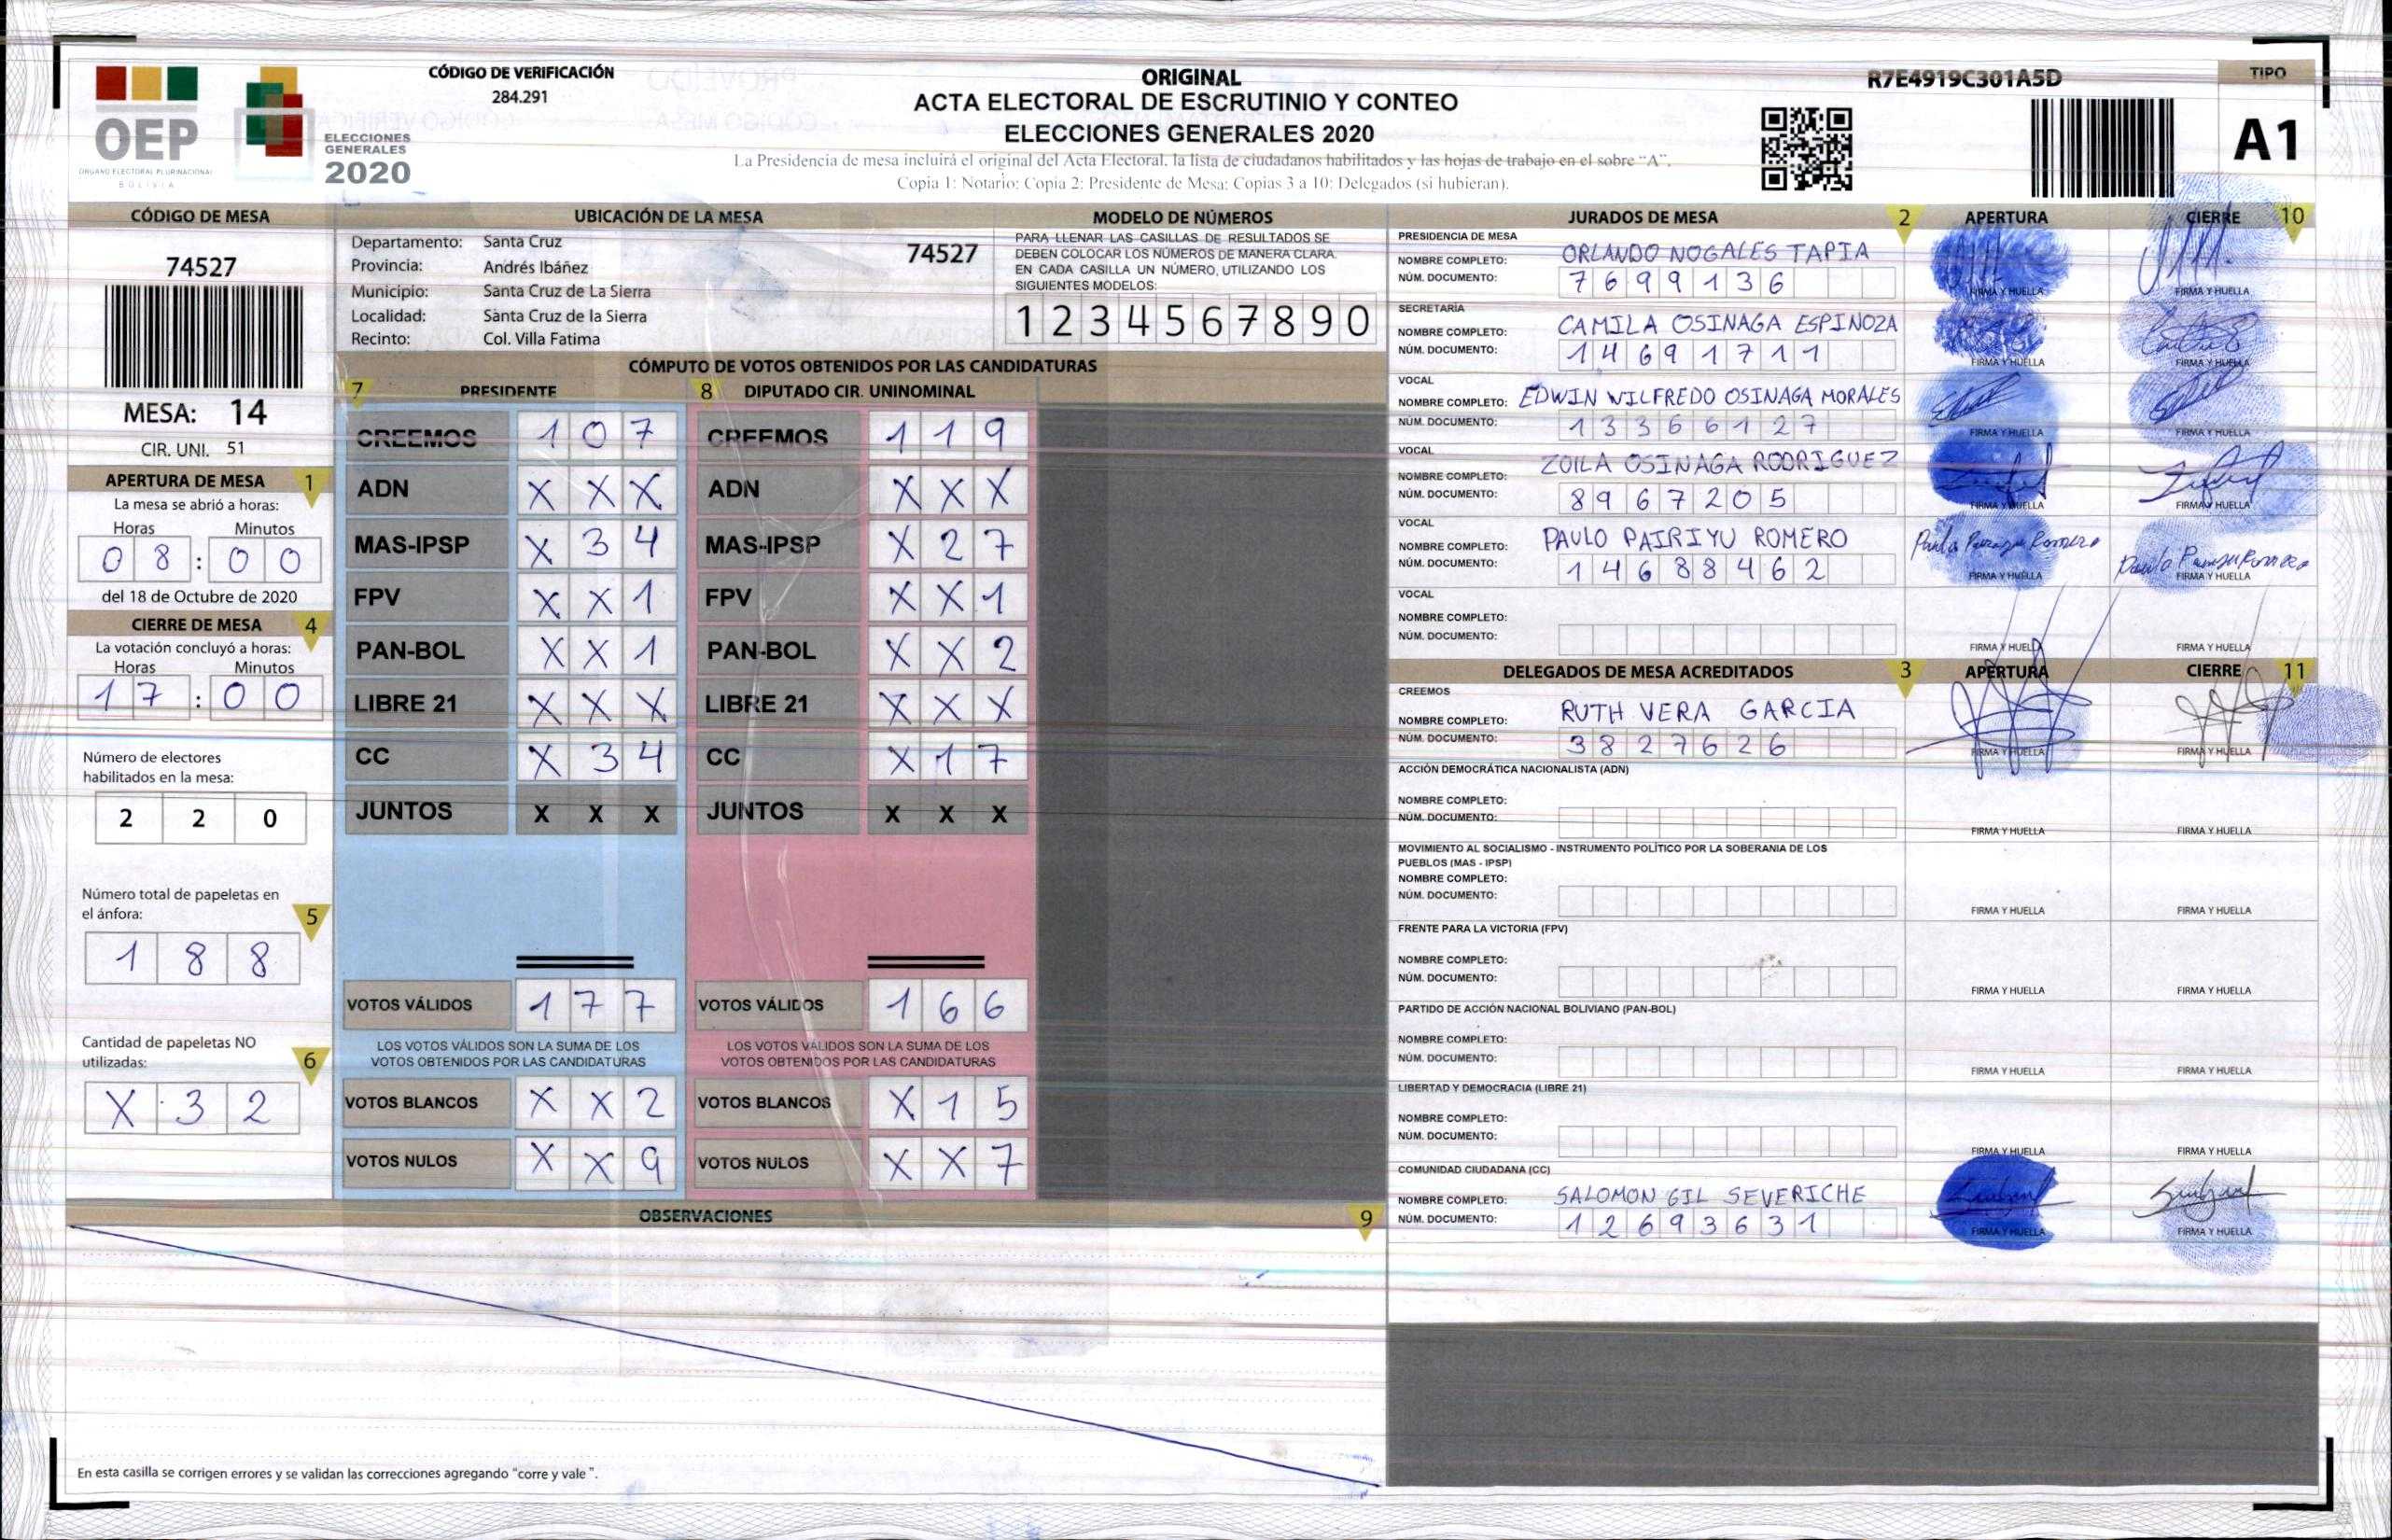 OEP
ÓRGANO ELECTORAL PLURINACIONAL
BOLIVIA
ELECCIONES
GENERALES
2020
CÓDIGO DE VERIFICACIÓN
284.291
ORIGINAL
ACTA ELECTORAL DE ESCRUTINIO Y CONTEO
ELECCIONES GENERALES 2020
La Presidencia de mesa incluirá el original del Acta Electoral, la lista de ciudadanos habilitados y las hojas de trabajo en el sobre "A".
Copia 1: Notario; Copia 2: Presidente de Mesa; Copias 3 a 10: Delegados (si hubieran).
R7E4919C301A5D
TIPO
A1
CÓDIGO DE MESA
74527
MESA: 14
CIR. UNI. 51
APERTURA DE MESA 1
La mesa se abrió a horas:
Horas Minutos
0 8 : 0 0
del 18 de Octubre de 2020
CIERRE DE MESA 4
La votación concluyó a horas:
Horas Minutos
1 7 : 0 0
Número de electores
habilitados en la mesa:
2 2 0
Número total de papeletas en
el ánfora: 5
1 8 8
Cantidad de papeletas NO
utilizadas: 6
X 3 2
UBICACIÓN DE LA MESA
Departamento: Santa Cruz 74527
Provincia: Andrés Ibáñez
Municipio: Santa Cruz de La Sierra
Localidad: Santa Cruz de la Sierra
Recinto: Col. Villa Fatima
MODELO DE NÚMEROS
PARA LLENAR LAS CASILLAS DE RESULTADOS SE
DEBEN COLOCAR LOS NÚMEROS DE MANERA CLARA.
EN CADA CASILLA UN NÚMERO, UTILIZANDO LOS
SIGUIENTES MODELOS:
1 2 3 4 5 6 7 8 9 0
CÓMPUTO DE VOTOS OBTENIDOS POR LAS CANDIDATURAS
7 PRESIDENTE 8 DIPUTADO CIR. UNINOMINAL
CREEMOS 1 0 7 CREEMOS 1 1 9
ADN X X X ADN X X X
MAS-IPSP X 3 4 MAS-IPSP X 2 7
FPV X X 1 FPV X X 1
PAN-BOL X X 1 PAN-BOL X X 2
LIBRE 21 X X X LIBRE 21 X X X
CC X 3 4 CC X 1 7
JUNTOS X X X JUNTOS X X X
VOTOS VÁLIDOS 1 7 7 VOTOS VÁLIDOS 1 6 6
LOS VOTOS VÁLIDOS SON LA SUMA DE LOS LOS VOTOS VÁLIDOS SON LA SUMA DE LOS
VOTOS OBTENIDOS POR LAS CANDIDATURAS VOTOS OBTENIDOS POR LAS CANDIDATURAS
VOTOS BLANCOS X X 2 VOTOS BLANCOS X 1 5
VOTOS NULOS X X 9 VOTOS NULOS X X 7
OBSERVACIONES 9
En esta casilla se corrigen errores y se validan las correcciones agregando "corre y vale".
JURADOS DE MESA 2 APERTURA CIERRE 10
PRESIDENCIA DE MESA
NOMBRE COMPLETO: ORLANDO NOGALES TAPIA
NÚM. DOCUMENTO: 7 6 9 9 1 3 6 FIRMA Y HUELLA FIRMA Y HUELLA
SECRETARÍA
NOMBRE COMPLETO: CAMILA OSINAGA ESPINOZA
NÚM. DOCUMENTO: 1 4 6 9 1 7 1 1 FIRMA Y HUELLA FIRMA Y HUELLA
VOCAL
NOMBRE COMPLETO: EDWIN WILFREDO OSINAGA MORALES
NÚM. DOCUMENTO: 1 3 3 6 6 1 2 7 FIRMA Y HUELLA FIRMA Y HUELLA
VOCAL
NOMBRE COMPLETO: ZOILA OSINAGA RODRIGUEZ
NÚM. DOCUMENTO: 8 9 6 7 2 0 5 FIRMA Y HUELLA FIRMA Y HUELLA
VOCAL
NOMBRE COMPLETO: PAULO PAIRIYU ROMERO
NÚM. DOCUMENTO: 1 4 6 8 8 4 6 2 FIRMA Y HUELLA FIRMA Y HUELLA
VOCAL
NOMBRE COMPLETO:
NÚM. DOCUMENTO: FIRMA Y HUELLA FIRMA Y HUELLA
DELEGADOS DE MESA ACREDITADOS 3 APERTURA CIERRE 11
CREEMOS
NOMBRE COMPLETO: RUTH VERA GARCIA
NÚM. DOCUMENTO: 3 8 2 7 6 2 6 FIRMA Y HUELLA FIRMA Y HUELLA
ACCIÓN DEMOCRÁTICA NACIONALISTA (ADN)
NOMBRE COMPLETO:
NÚM. DOCUMENTO: FIRMA Y HUELLA FIRMA Y HUELLA
MOVIMIENTO AL SOCIALISMO - INSTRUMENTO POLÍTICO POR LA SOBERANIA DE LOS
PUEBLOS (MAS - IPSP)
NOMBRE COMPLETO:
NÚM. DOCUMENTO: FIRMA Y HUELLA FIRMA Y HUELLA
FRENTE PARA LA VICTORIA (FPV)
NOMBRE COMPLETO:
NÚM. DOCUMENTO: FIRMA Y HUELLA FIRMA Y HUELLA
PARTIDO DE ACCIÓN NACIONAL BOLIVIANO (PAN-BOL)
NOMBRE COMPLETO:
NÚM. DOCUMENTO: FIRMA Y HUELLA FIRMA Y HUELLA
LIBERTAD Y DEMOCRACIA (LIBRE 21)
NOMBRE COMPLETO:
NÚM. DOCUMENTO: FIRMA Y HUELLA FIRMA Y HUELLA
COMUNIDAD CIUDADANA (CC)
NOMBRE COMPLETO: SALOMON GIL SEVERICHE
NÚM. DOCUMENTO: 1 2 6 9 3 6 3 1 FIRMA Y HUELLA FIRMA Y HUELLA